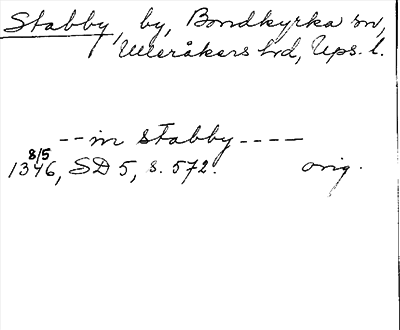 Stabby, by, Bondkyrka sn,
Ulleråkers hd, Ups. l.
-- in stabby ----
8/5
1346, SD 5, s. 572. orig.